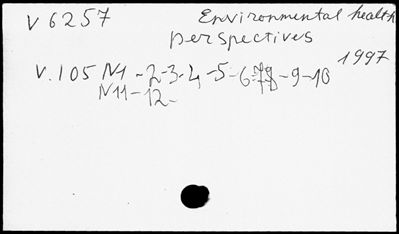 V 6257 Environmental health
perspectives
1997
V. 105 N1 -2-3-4 -5-6-78-9-10
N11-12-